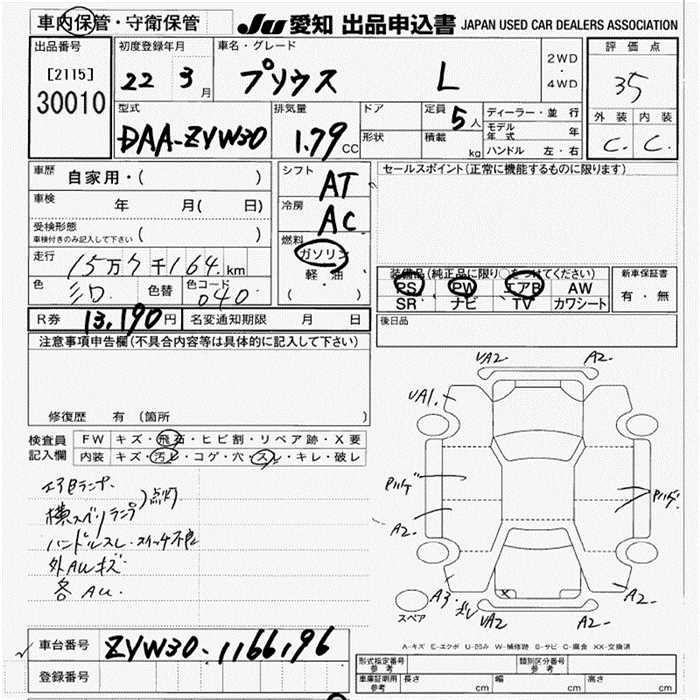 車内保管・守衛保管 JU 愛知 出品申込書 JAPAN USED CAR DEALERS ASSOCIATION
出品番号 初度登録年月 車名・グレード 2WD 評価点
[2115] 22 3月 プリウス L ・ 35
30010 4WD
型式 排気量 ドア 定員 5人 ディーラー・並行 外装 内装
DAA-ZVW30 1.79 CC 形状 積載 kg モデル年式 年 C. C.
ハンドル 左・右
車歴 自家用・( ) シフト AT セールスポイント(正常に機能するものに限ります)
車検 年 月( 日) 冷房 AC
受検形態
車検付きのみ記入して下さい ( ) 燃料 ガソリン
走行 15万7千164km 軽・油 装備品(純正品に限り○をつけてください) 新車保証書
色 シロ 色替 色コード 040 ( ・ ) PS PW エアB AW 有・無
SR ナビ TV カワシート
R券 13,190円 名変通知期限 月 日 後日品
注意事項申告欄(不具合内容等は具体的に記入して下さい)
修復歴 有 (箇所 )
検査員 FW キズ・飛石・ヒビ割・リペア跡・X要
記入欄 内装 キズ・汚レ・コゲ・穴・スレ・キレ・破レ
エアBランプ
横スベリランプ)点灯
ハンドルスレ・スイッチ不良
外AUキズ
各AU.
UA2 A2-
UA1.
A2.
A3. UA2 A2- A2-
スペア
A-キズ E-エクボ U-凹み W-補修跡 S-サビ C-腐食 XX-交換済
車台番号 ZVW30-1166196
登録番号
形式指定番号 参考 類別区分番号 参考
車庫証明用 参考 長さ cm 幅 cm 高さ cm